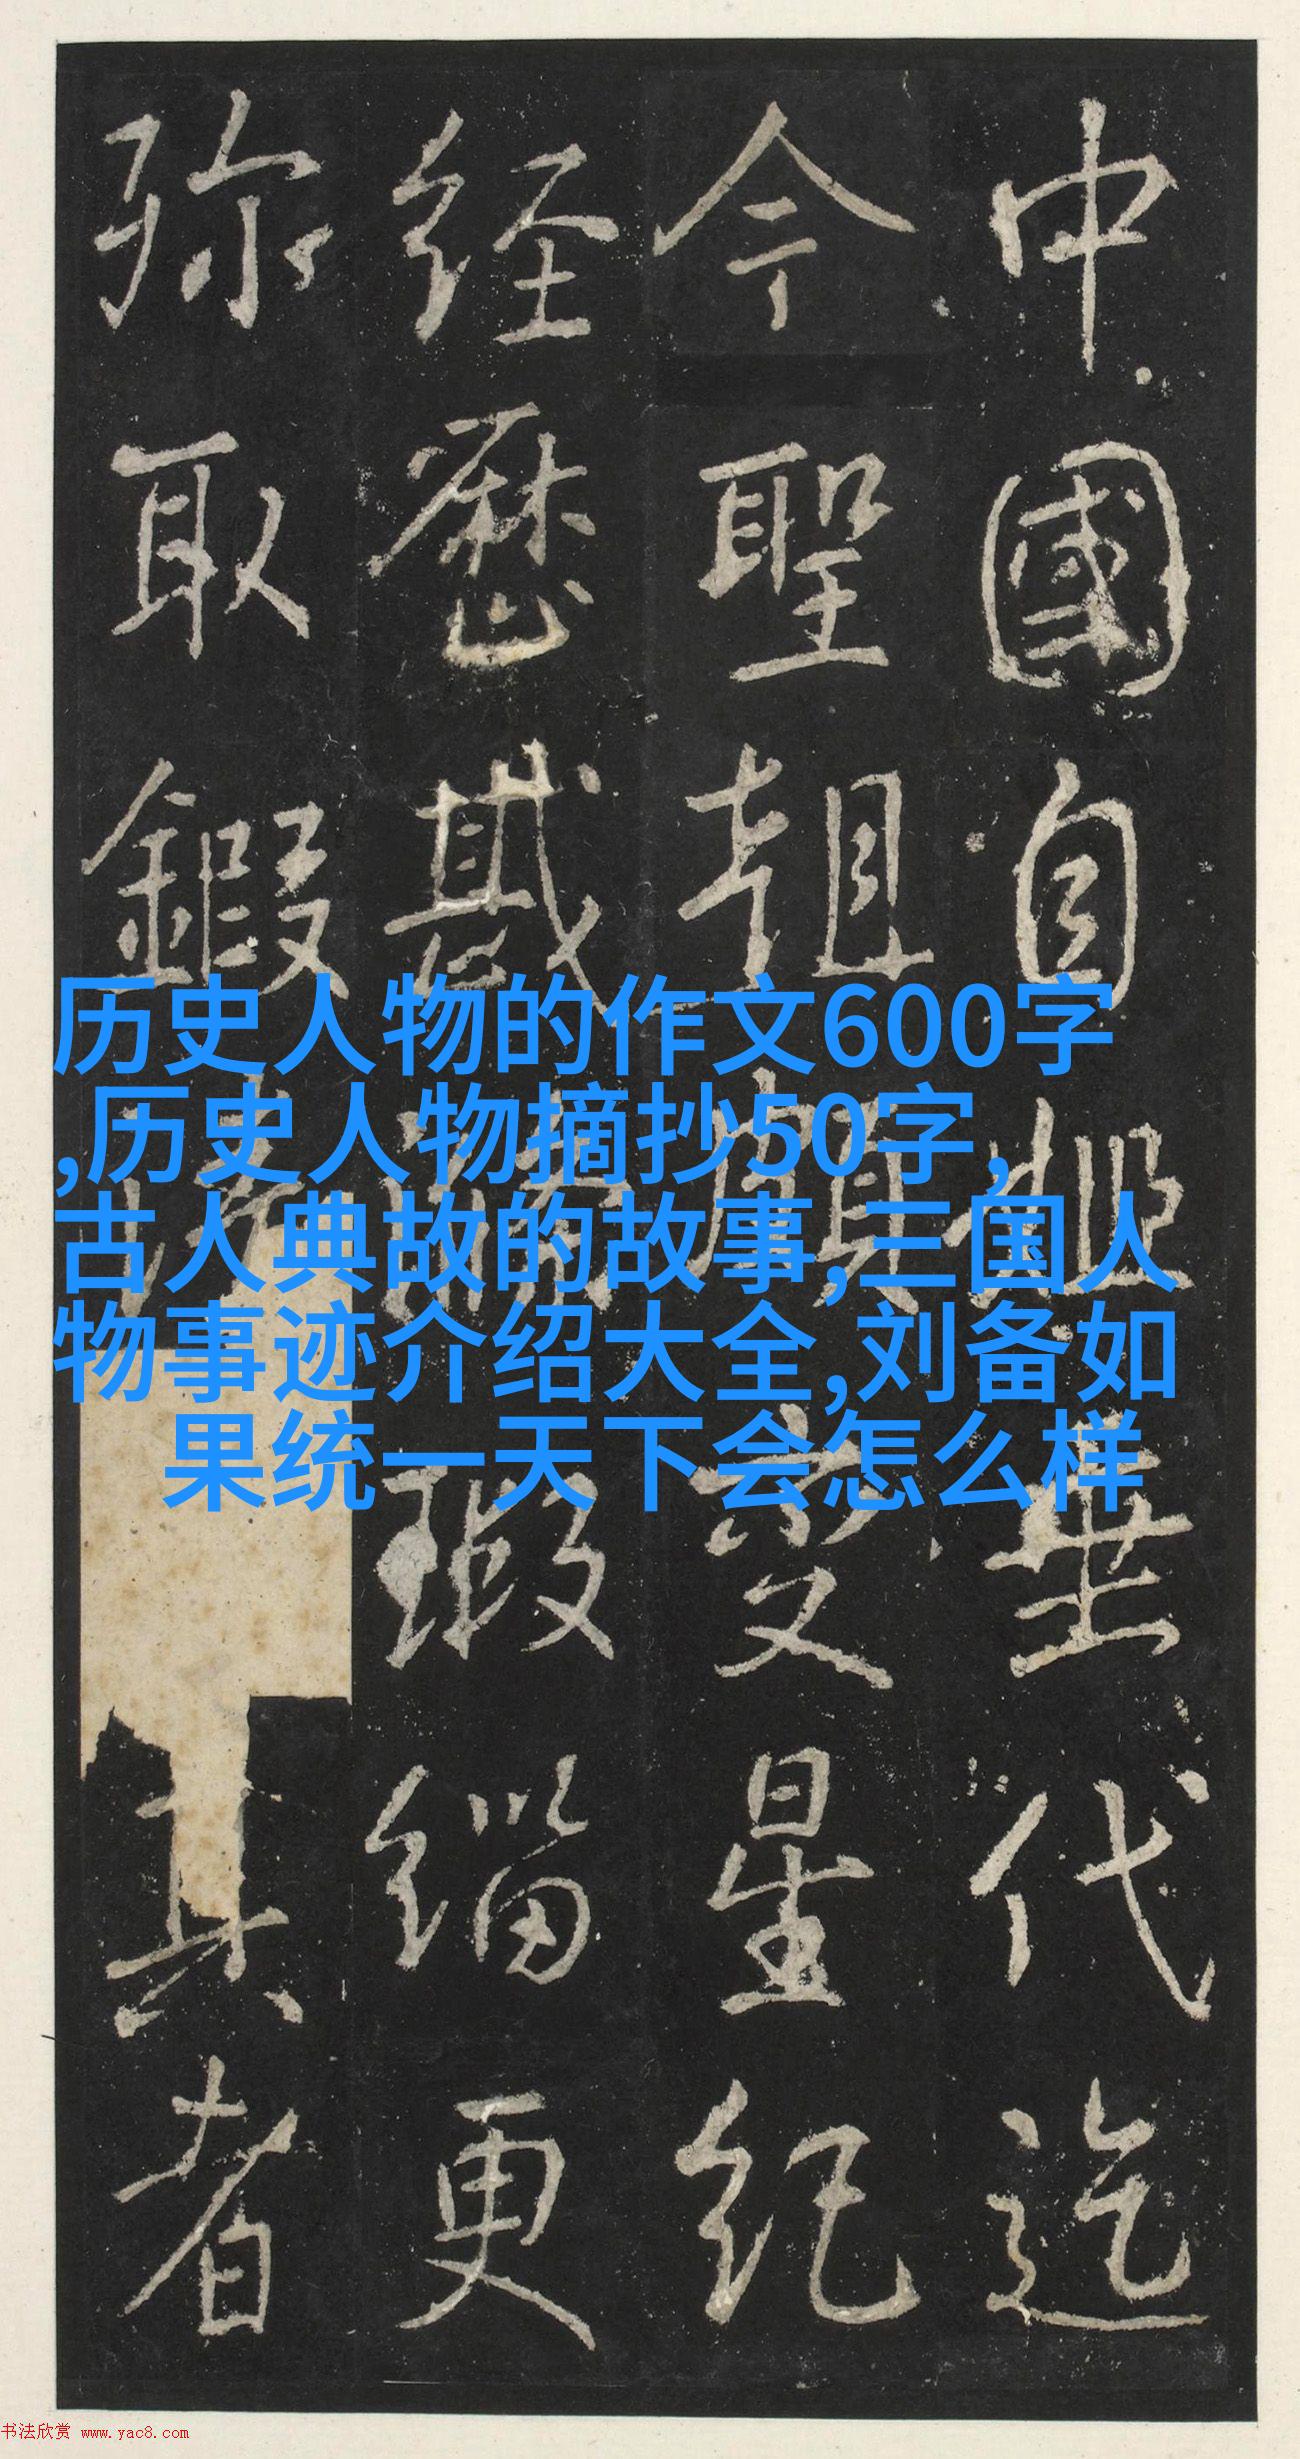 中國自姬世代迄
今聖朝 受星紀
经歷 瑕緇更
弥取鍜 真者
历史人物的作文600字
,历史人物摘抄50字,
古人典故的故事,三国人
物事迹介绍大全,刘备如
果统一天下会怎么样
书法欣赏 www.yac8.com